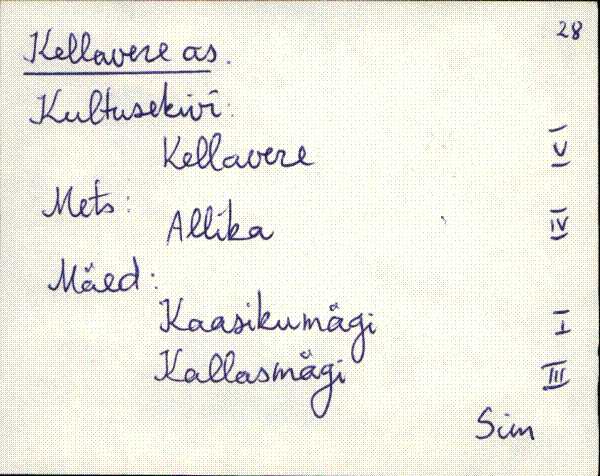 28
Kellavere as.
Kultusekivi:
Kellavere V
Mets:
Allika IV
Mäed:
Kaasikumägi I
Kallasmägi III
Sim